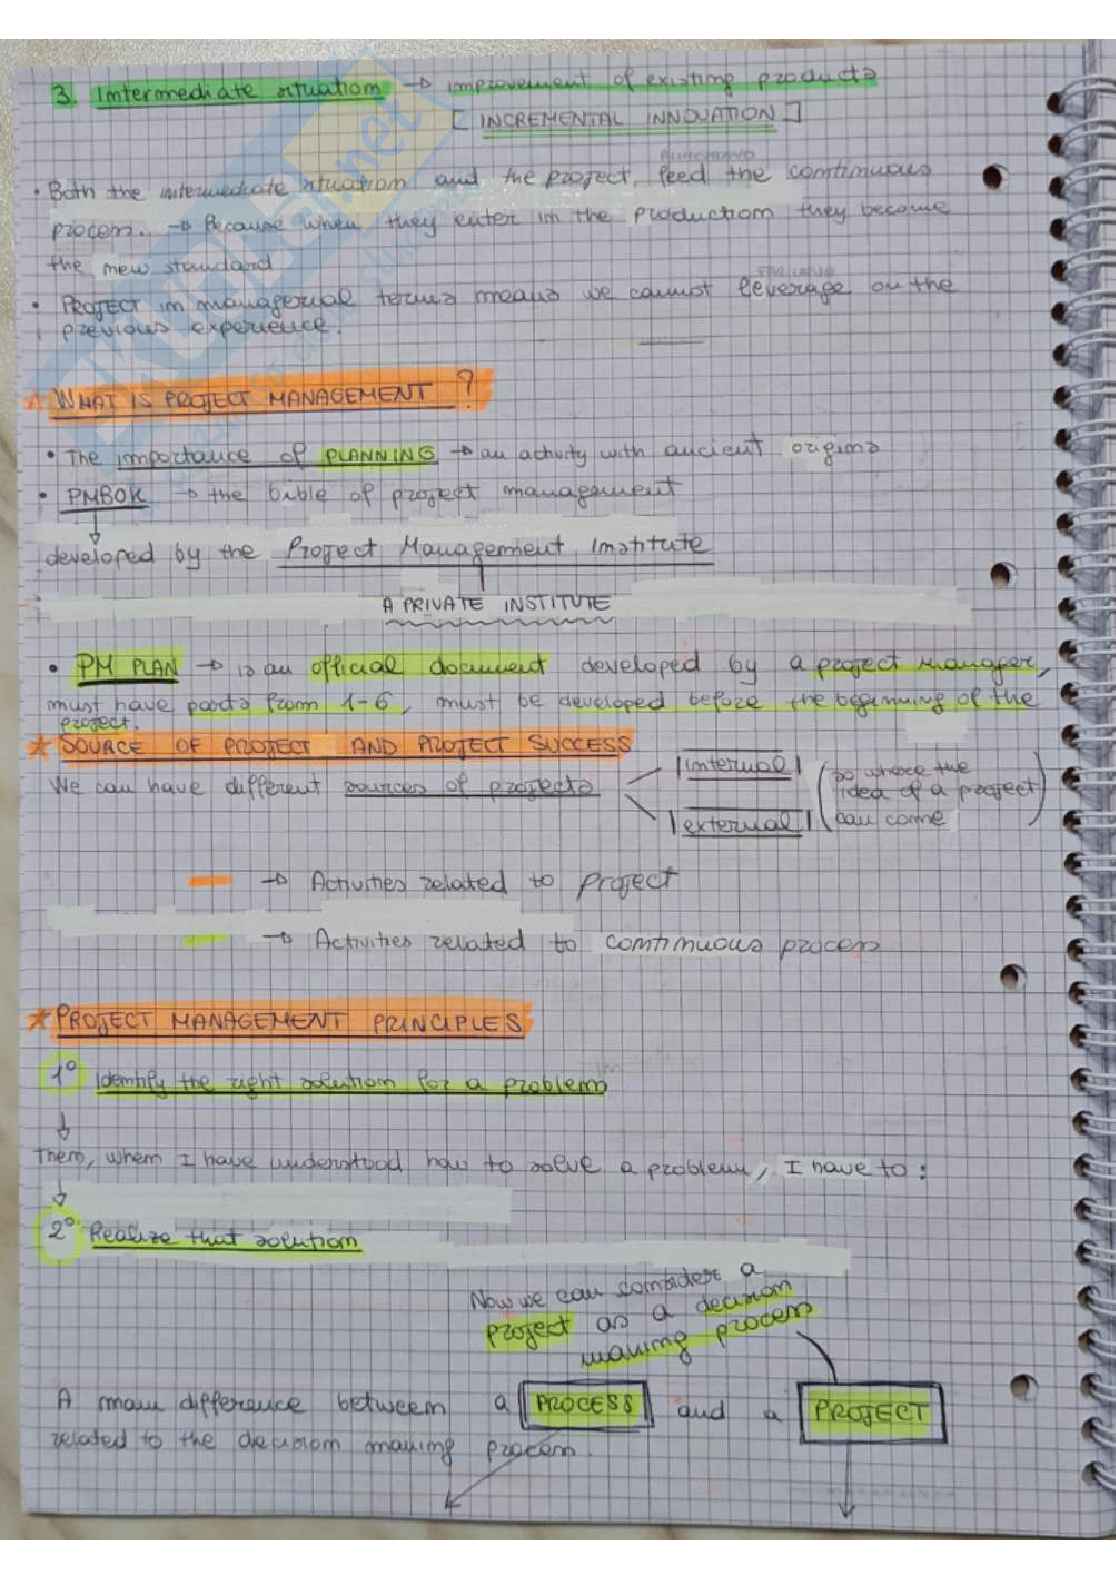 3. Intermediate situation → improvement of existing products
[ INCREMENTAL INNOVATION ]
• Both the intermediate situation and the project, feed the continuous
process. → Because when they enter in the production they become
the new standard
• PROJECT in managerial terms means we cannot leverage on the
previous experience.
WHAT IS PROJECT MANAGEMENT ?
• The importance of PLANNING → an activity with ancient origins
• PMBOK → the bible of project management
developed by the Project Management Institute
A PRIVATE INSTITUTE
• PM PLAN → is an official document developed by a project manager,
must have points from 1-6, must be developed before the beginning of the
project.
* SOURCE OF PROJECT AND PROJECT SUCCESS
We can have different sources of projects
|internal|
|external|
(so where the
idea of a project
can come)
→ Activities related to project
→ Activities related to continuous process
* PROJECT MANAGEMENT PRINCIPLES
1° Identify the right solution for a problem
Then, when I have understood how to solve a problem, I have to:
2° Realize that solution
Now we can consider a
project as a decision
making process
A main difference between a PROCESS and a PROJECT
related to the decision making process.